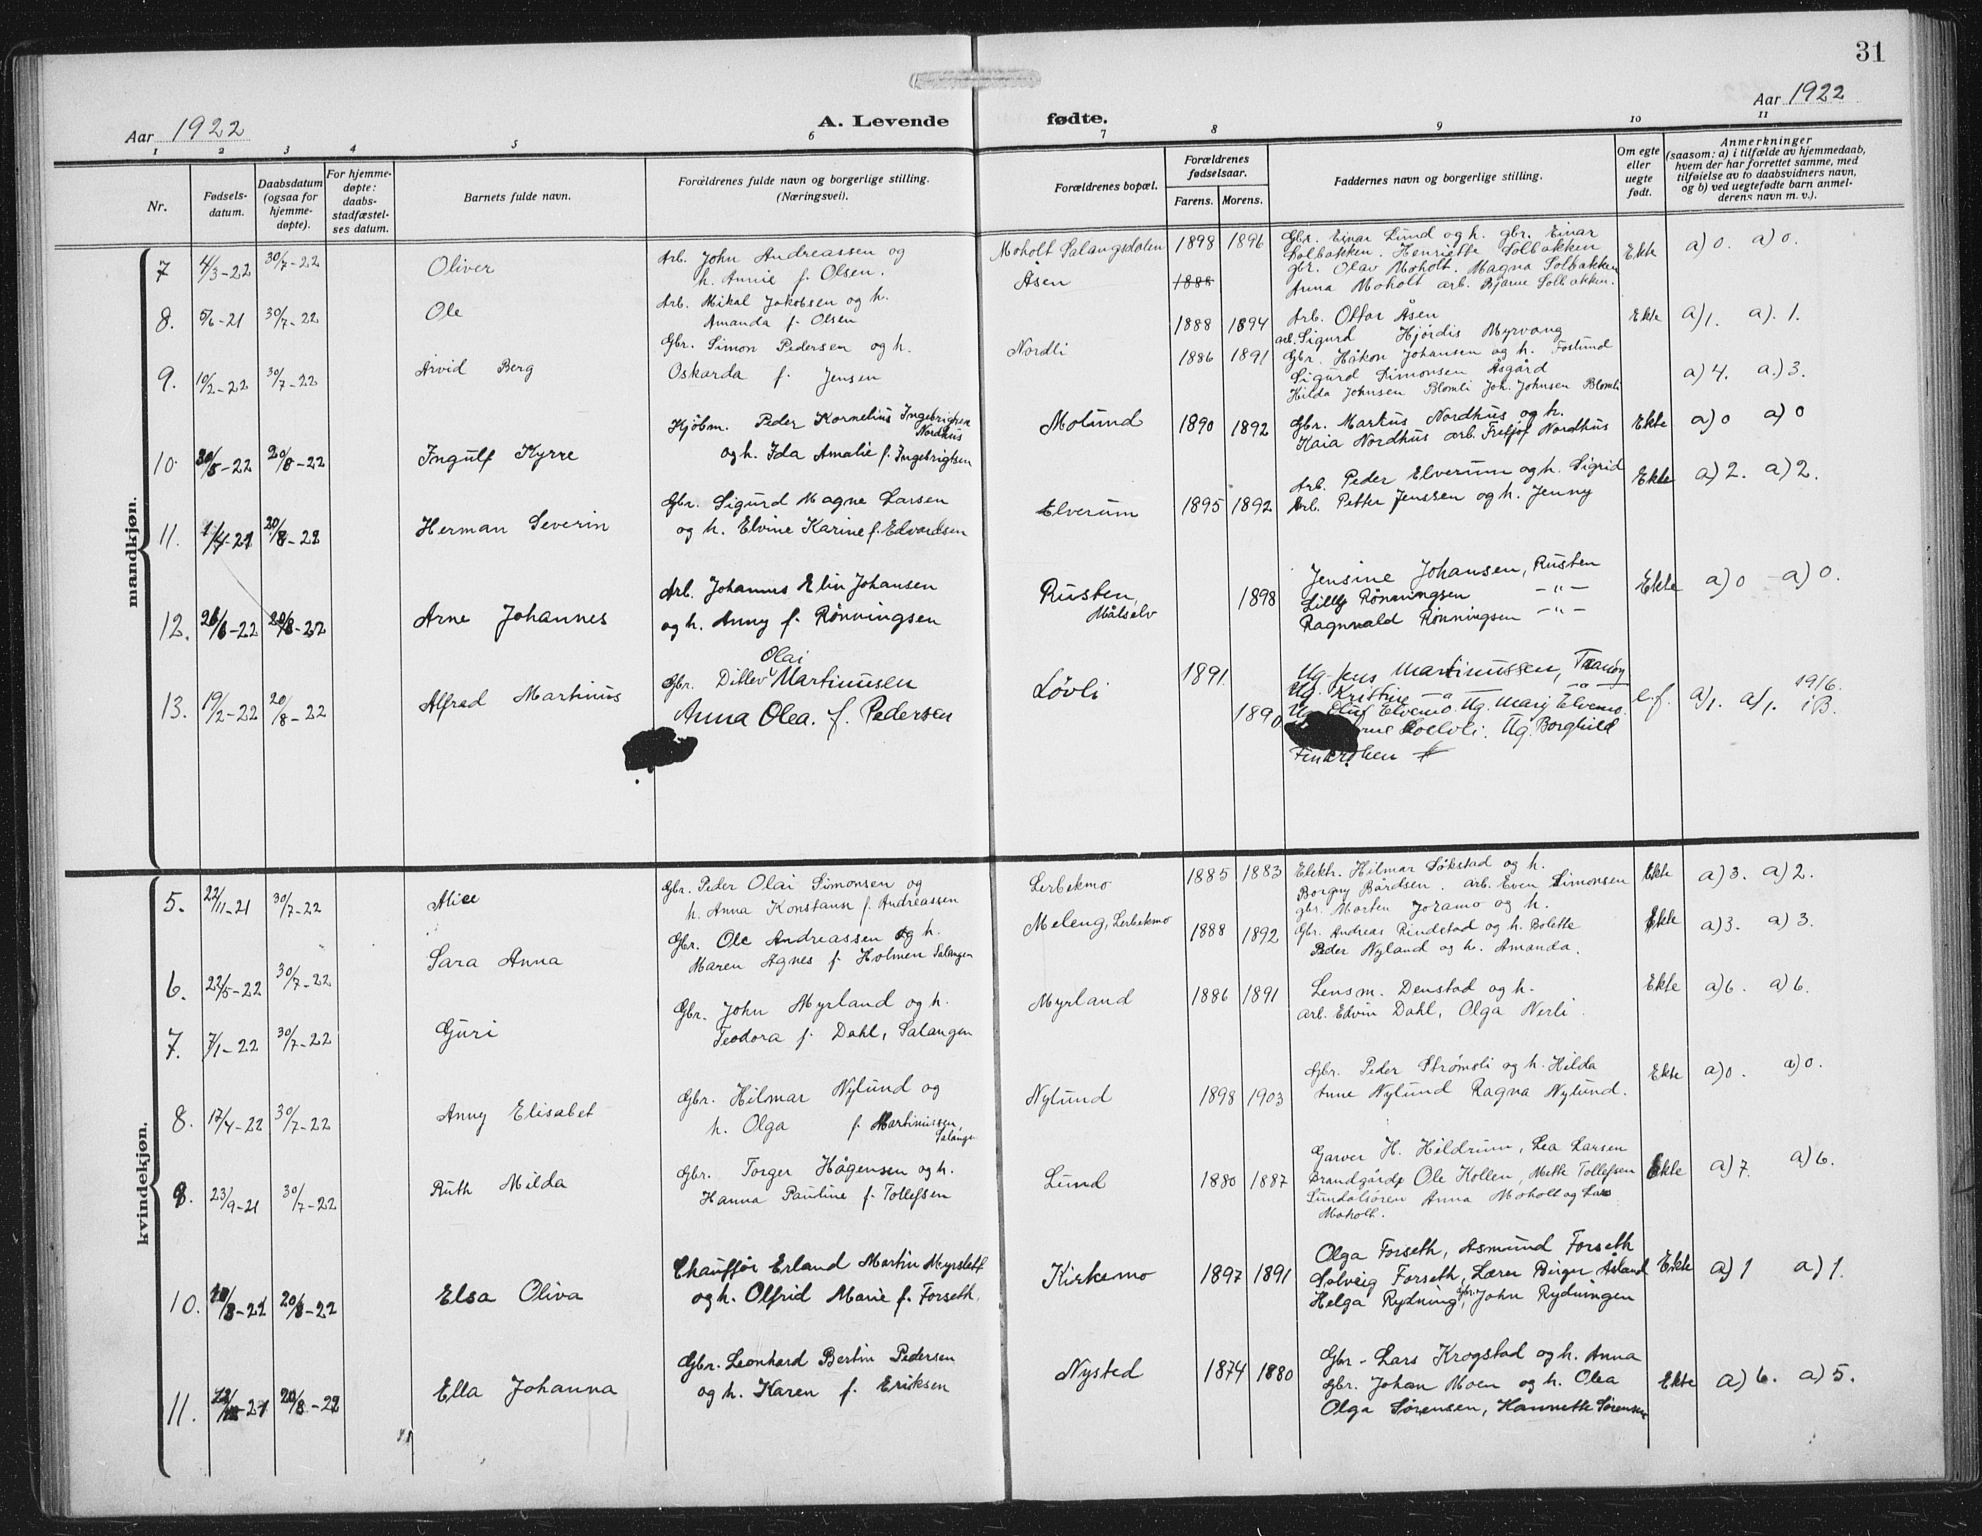 31
Aar 1922
A. Levende fødte.
Aar 1922
1 2 3 4 5 6 7 8 9 10 11
Nr.
Fødsels-
datum.
Daabsdatum
(ogsaa for
hjemme-
døpte).
For hjemme-
døpte:
daabs-
stadfæstel-
ses datum.
Barnets fulde navn.
Forældrenes fulde navn og borgerlige stilling.
(Næringsvei).
Forældrenes bopæl.
Forældrenes
fødselsaar.
Farens. Morens.
Faddernes navn og borgerlige stilling.
Om egte
eller
uegte
født.
Anmerkninger
(saasom: a) i tilfælde av hjemmedaab,
hvem der har forrettet samme, med
tilføielse av to daabsvidners navn,
og b) ved uegtefødte barn anmel-
derens navn m. v.).
mandkjøn.
7 4/3-22 30/7-22 Oliver
Arb. John Andreassen og
h. Annie f. Olsen.
Moholt Salangsdalen 1898 1896
Gbr. Einar Lund og h. gbr. Einar
Solbakken. Henriette Solbakken
gbr. Olav Moholt. Magna Solbakken
Anna Moholt arb. Bjarne Solbakken.
Ekte a) 0. a) 0.
8. 5/6-21 30/7-22 Ole
Arb. Mikal Jakobsen og h.
Amanda f. Olsen
Åsen 1888
1888 1894
Arb. Ottar Åsen
arb. Sigurd Hjørdis Myrvang
Ekte a) 1. a). 1.
9. 10/2-22 30/7-22 Arvid Berg
Gbr. Simon Pedersen og h.
Oskarda f. Jensen
Nordli 1886 1891
Gbr. Håkon Johansen og h. Foslund
Sigurd Simonsen Åsgård
Hilda Johnsen Blomli Joh. Johnsen Blomli
a) 4. a.) 3.
10. 30/5-22 20/8-22 Ingulf Kyrre
Kjøbm. Peder Kornelius Ingebrigtsen
Nordhus
og h. Ida Amalie f. Ingebrigtsen
Molund 1890 1892
Gbr. Markus Nordhus og h.
Kaia Nordhus arb. Fretjof Nordhus
Ekte a) 0 a) 0
11. 1/4-21 20/8-22 Herman Severin
Gbr. Sigurd Magne Larsen
og h. Elvine Karine f. Edvardsen
Elverum 1895 1892
Arb. Peder Elverum og h. Sigrid
Arb. Petter Jenssen og h. Jenny
Ekte a) 2. a) 2.
12. 26/6-22 20/8-22 Arne Johannes
Arb. Johannes Elin Johansen
og h. Anny f. Rønningsen
Rusten,
Målselv
1898
Jensine Johansen, Rusten
Lilly Rønningsen -"-
Ragnvald Rønningsen -"-
Ekte a) 0 - a) 0.
13. 19/2-22 20/8-22 Alfred Martinus
Olai
Gbr. Ditlev Martinusen
Anna Olea. f. Pedersen
Løvli 1891
1890
Ug. Jens Martinussen, Tranøy
Ug. Kristine
Ug. Oluf Elvemo. Ug. Marij Elvemo.
Loelvli. Ug. Borghild
e.f. a) 1. a) 1. 1916.
i B.
kvindekjøn.
5. 22/11-21 30/7-22 Alice
Gbr. Peder Olai Simonsen og
h. Anna Konstanse f. Andreassen
Lerbekmo 1885 1883
Elektr. Hilmar Søkstad og h.
Borgny Bårdsen. arb. Even Simonsen
gbr. Morten Joramo og h.
Ekte a) 3. a) 2.
6. 22/5-22 30/7-22 Sara Anna
Gbr. Ole Andreassen og h.
Maren Agnes f. Holmen Salangen
Meleng, Lerbekmo 1888 1892
Gbr. Andreas Rindstad og h. Bolette
Peder Nyland og h. Amanda.
Ekte a) 3. a) 3.
7. 7/1-22 30/7-22 Guri
Gbr. John Myrland og h.
Teodora f. Dahl, Salangen
Myrland 1886 1891
Lensm. Denstad og h.
arb. Edvin Dahl, Olga Nerli
Ekte a) 6. a) 6.
8. 17/4-22 30/7-22 Anny Elisabet
Gbr. Hilmar Nylund og
h. Olga f. Martinussen,
Salangen
Nylund 1898 1903
Gbr. Peder Strømsli og h. Hilda
Anne Nylund Ragna Nylund.
Ekte a) 0. a) 0.
9. 23/9-21 30/7-22 Ruth Milda
Gbr. Torger Hågensen og h.
Hanna Pauline f. Tollefsen
Lund 1880 1887
Garver H. Hildrum, Lea Larsen
Brandgårds Ole Kollen, Meth Tollefsen
Sundalsøren Anna Moholt og Lars
Moholt.
Ekte a) 7. a) 6.
10. /8-21 20/8-22 Elsa Oliva
Chauffør Erland Martin Myrslett
og h. Olfrid Marie f. Forseth.
Kirkemo 1897 1891
Olga Forseth, Asmund Forseth
Solveig Forseth, Lærer Birger Åsland
Helga Rydning, gbr. John Rydningen
Ekte a) 1 a) 1.
11. -21 20/8-22 Ella Johanna
Gbr. Leonhard Bertin Pedersen
og h. Karen f. Eriksen
Nysted 1874 1880
Gbr - Lars Krogstad og h. Anna
Gbr. Johan Moen og h. Olea
Olga Sørensen, Hannette Sørensen
Ekte a) 6. a) 5.